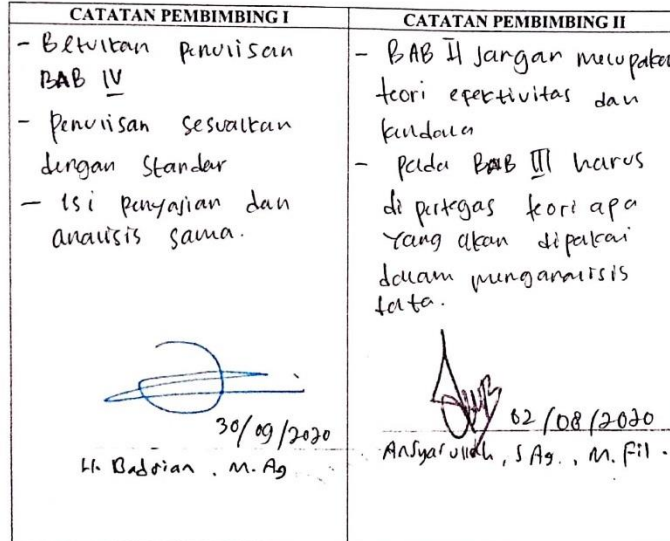 CATATAN PEMBIMBING I
- Betulkan penulisan
BAB IV
- Penulisan sesuaikan
dengan standar
- Isi penyajian dan
analisis sama.
30/09/2020
H. Badrian, M.Ag
CATATAN PEMBIMBING II
- BAB II Jangan merupakan
teori efektivitas dan
kendala
- pada BAB III harus
di pertegas teori apa
yang akan dipakai
dalam menganalisis
data.
02/08/2020
Ansyarullah, S Ag., M. Fil.